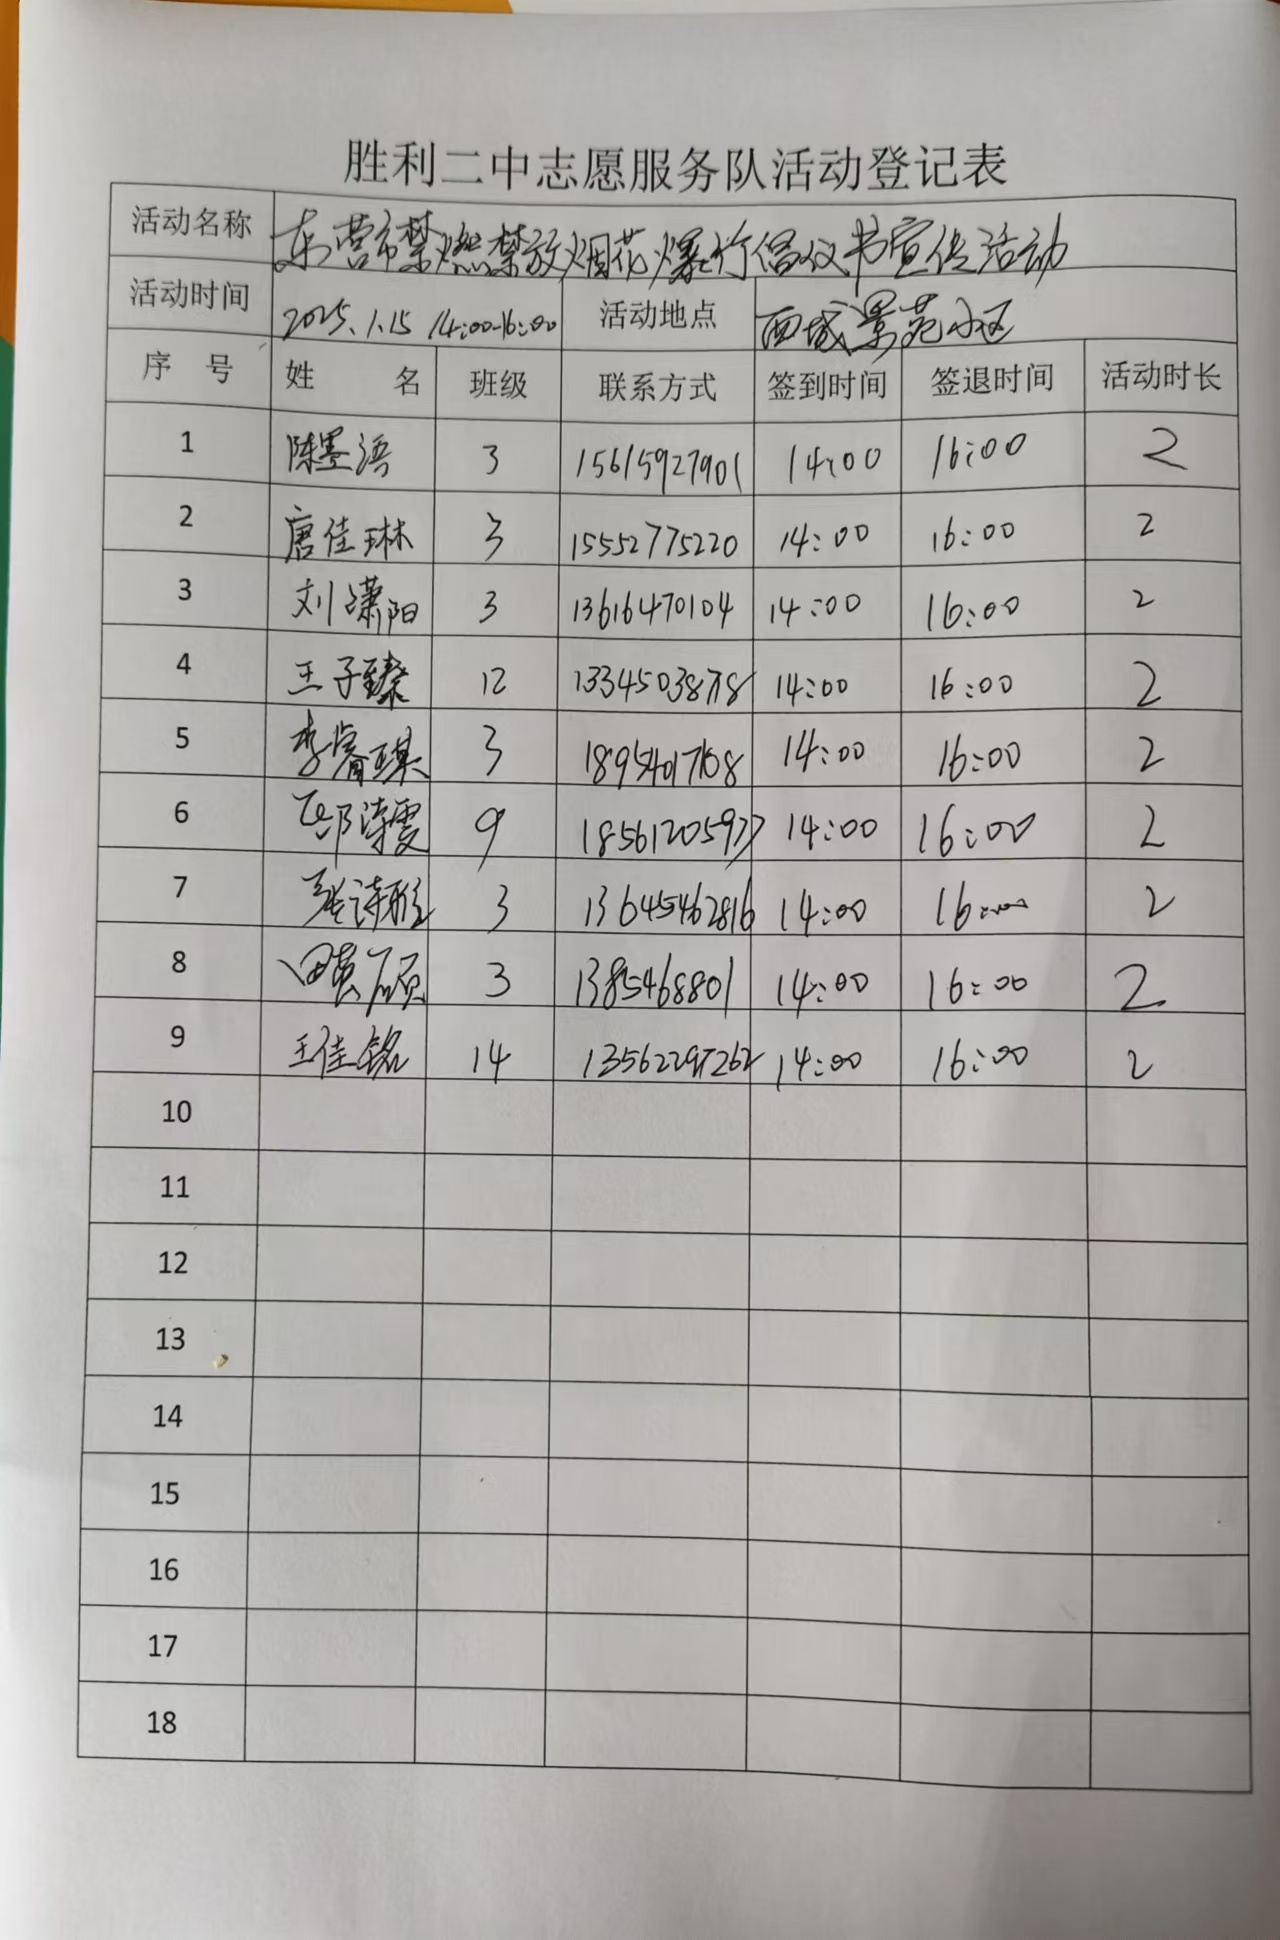 胜利二中志愿服务队活动登记表
活动名称 东营市禁燃禁放烟花爆竹倡议书宣传活动
活动时间 2025.1.15 14:00-16:00 活动地点 西城景苑小区
序 号 姓 名 班级 联系方式 签到时间 签退时间 活动时长
1 陈墨语 3 15615927901 14:00 16:00 2
2 唐佳琳 3 15552775220 14:00 16:00 2
3 刘潇阳 3 13616470104 14:00 16:00 2
4 王子臻 12 13345038718 14:00 16:00 2
5 李睿琪 3 14:00 16:00 2
6 9 18561205977 14:00 16:00 2
7 张诗雅 3 13645462816 14:00 16:00 2
8 3 1385468801 14:00 16:00 2
9 王佳铭 14 13562297262 14:00 16:00 2
10
11
12
13
14
15
16
17
18